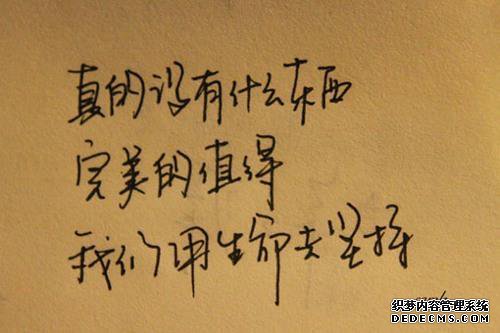 真的没有什么东西
完美的值得
我们用生命去坚持
织梦内容管理系统
DEDECMS.COM